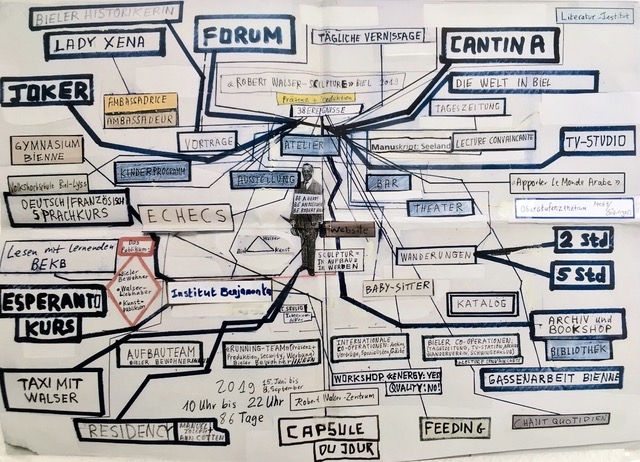 BIELER HISTORIKERIN
LADY XENA
FORUM
TÄGLICHE VERNISSAGE
CANTINA
Literatur-Institut
JOKER
« ROBERT WALSER-SCULPTURE» BIEL 2019
Präsenz + Produktion
38 EREIGNISSE
DIE WELT IN BIEL
TAGESZEITUNG
AMBASSADRICE
AMBASSADEUR
GYMNASIUM
BIENNE
VORTRÄGE
ATELIER
Manuskript: Seeland
LECTURE CONVAINCANTE
TV-STUDIO
KINDERPROGRAMM
AUSSTELLUNG
BAR
Volkshochschule Biel-Lyss
«Apporter Le Monde Arabe»
DEUTSCH/FRANZÖSISCH
SPRACHKURS
ECHECS
THEATER
BE A HERO!
BE AN OUTSIDER!
BE ROBERT WALSER!
Website
Walser
Biel
Kunst
SCULPTUR
IM AUFBAU
IM WERDEN
WANDERUNGEN
2 Std
5 Std
Lesen mit Lernenden
BEKB
Das
Publikum:
•Bieler
Bewohner
•Walser-
Liebhaber
•Kunst-
publikum
Institut Benjamenta
BABY-SITTER
KATALOG
ESPERANTO
KURS
SEELIG
ARCHIV und
BOOKSHOP
BIBLIOTHEK
AUFBAUTEAM
BIELER BEWOHNER
RUNNING-TEAM
Produktion, Security, Werbung)
Bieler Bewohner
INTERNATIONALE
CO-OPERATIONEN:
BIELER CO-OPERATIONEN:
TAXI MIT
WALSER
WORKSHOP «ENERGY: YES!
QUALITY: NO!
GASSENARBEIT BIENNE
2019 15. Juni bis
8. September
10 Uhr bis 22 Uhr
86 Tage
Robert Walser-Zentrum
RESIDENCY
ANN COTTEN
CAPSULE
DU JOUR
FEEDING
CHANT QUOTIDIEN